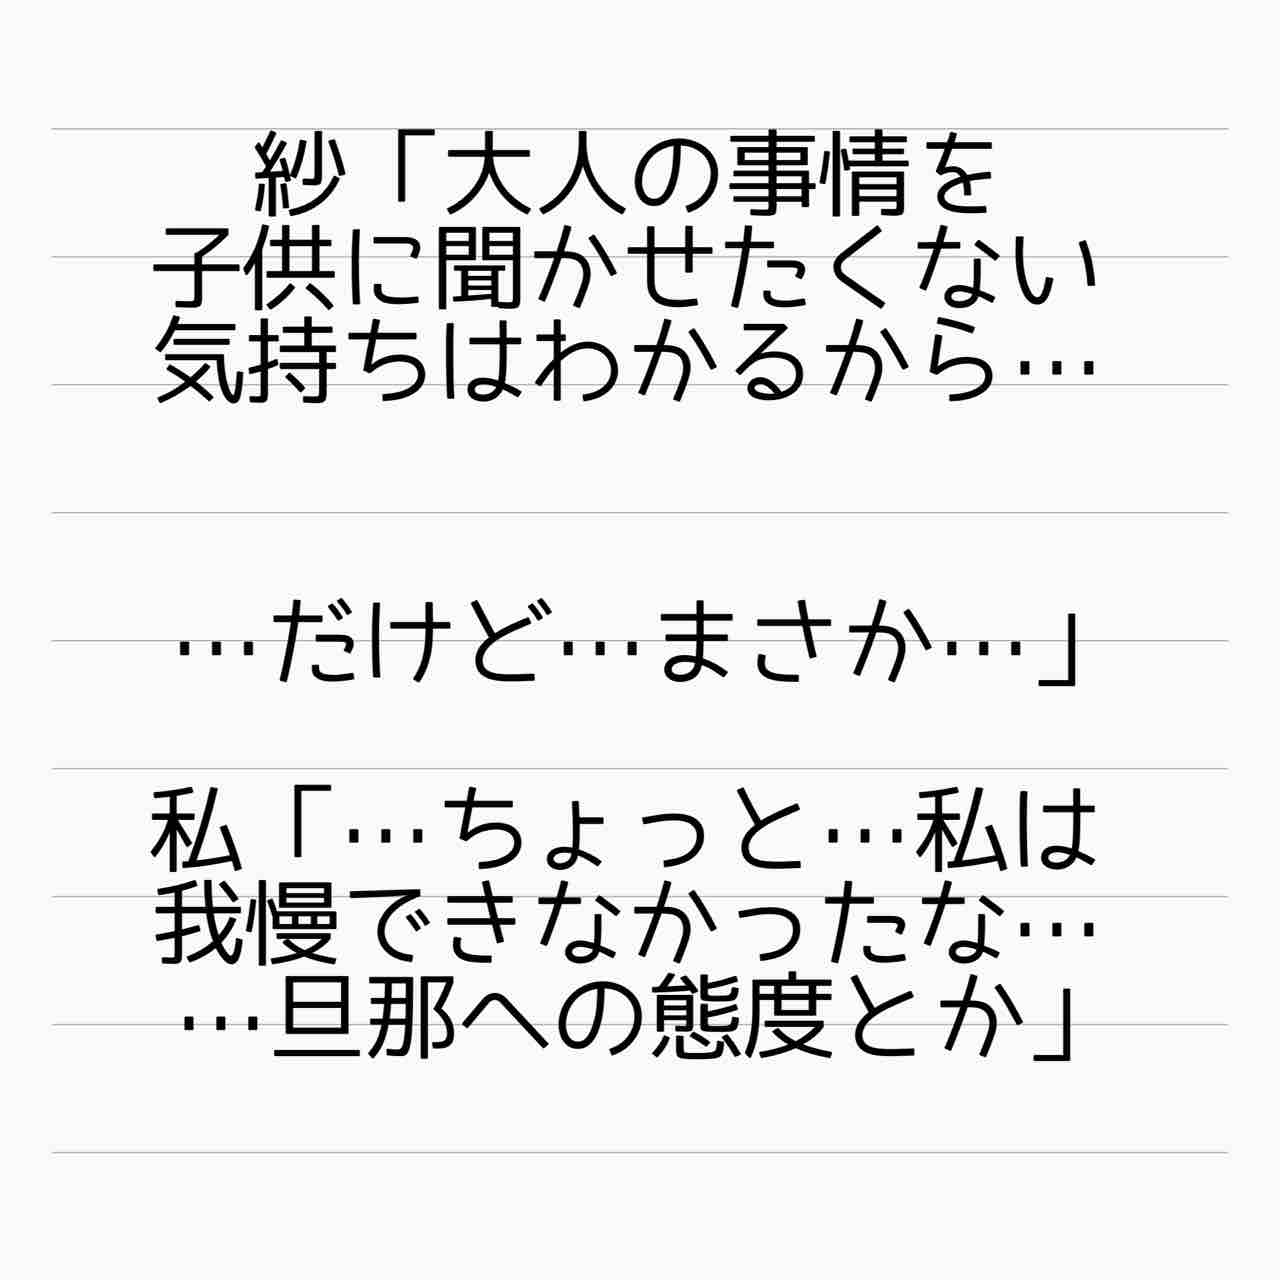 紗「大人の事情を
子供に聞かせたくない
気持ちはわかるから…
…だけど…まさか…」
私「…ちょっと…私は
我慢できなかったな…
…旦那への態度とか」